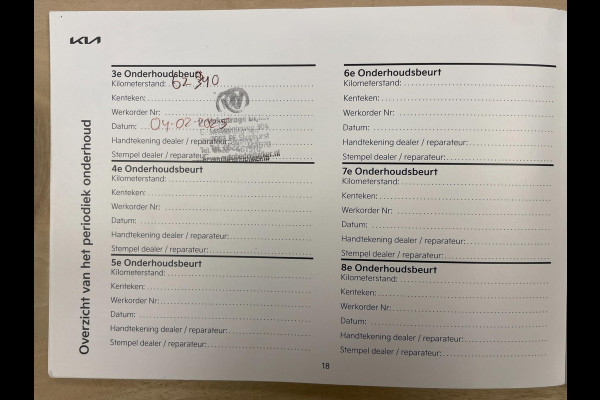 KIA
Overzicht van het periodiek onderhoud
3e Onderhoudsbeurt
Kilometerstand:
Kenteken:
Werkorder Nr:
Datum: 04-02-2025
Handtekening dealer / reparateur:
Stempel dealer / reparateur:
4e Onderhoudsbeurt
Kilometerstand:
Kenteken:
Werkorder Nr:
Datum:
Handtekening dealer / reparateur:
Stempel dealer / reparateur:
5e Onderhoudsbeurt
Kilometerstand:
Kenteken:
Werkorder Nr:
Datum:
Handtekening dealer / reparateur:
Stempel dealer / reparateur:
6e Onderhoudsbeurt
Kilometerstand:
Kenteken:
Werkorder Nr:
Datum:
Handtekening dealer / reparateur:
Stempel dealer / reparateur:
7e Onderhoudsbeurt
Kilometerstand:
Kenteken:
Werkorder Nr:
Datum:
Handtekening dealer / reparateur:
Stempel dealer / reparateur:
8e Onderhoudsbeurt
Kilometerstand:
Kenteken:
Werkorder Nr:
Datum:
Handtekening dealer / reparateur:
Stempel dealer / reparateur:
18